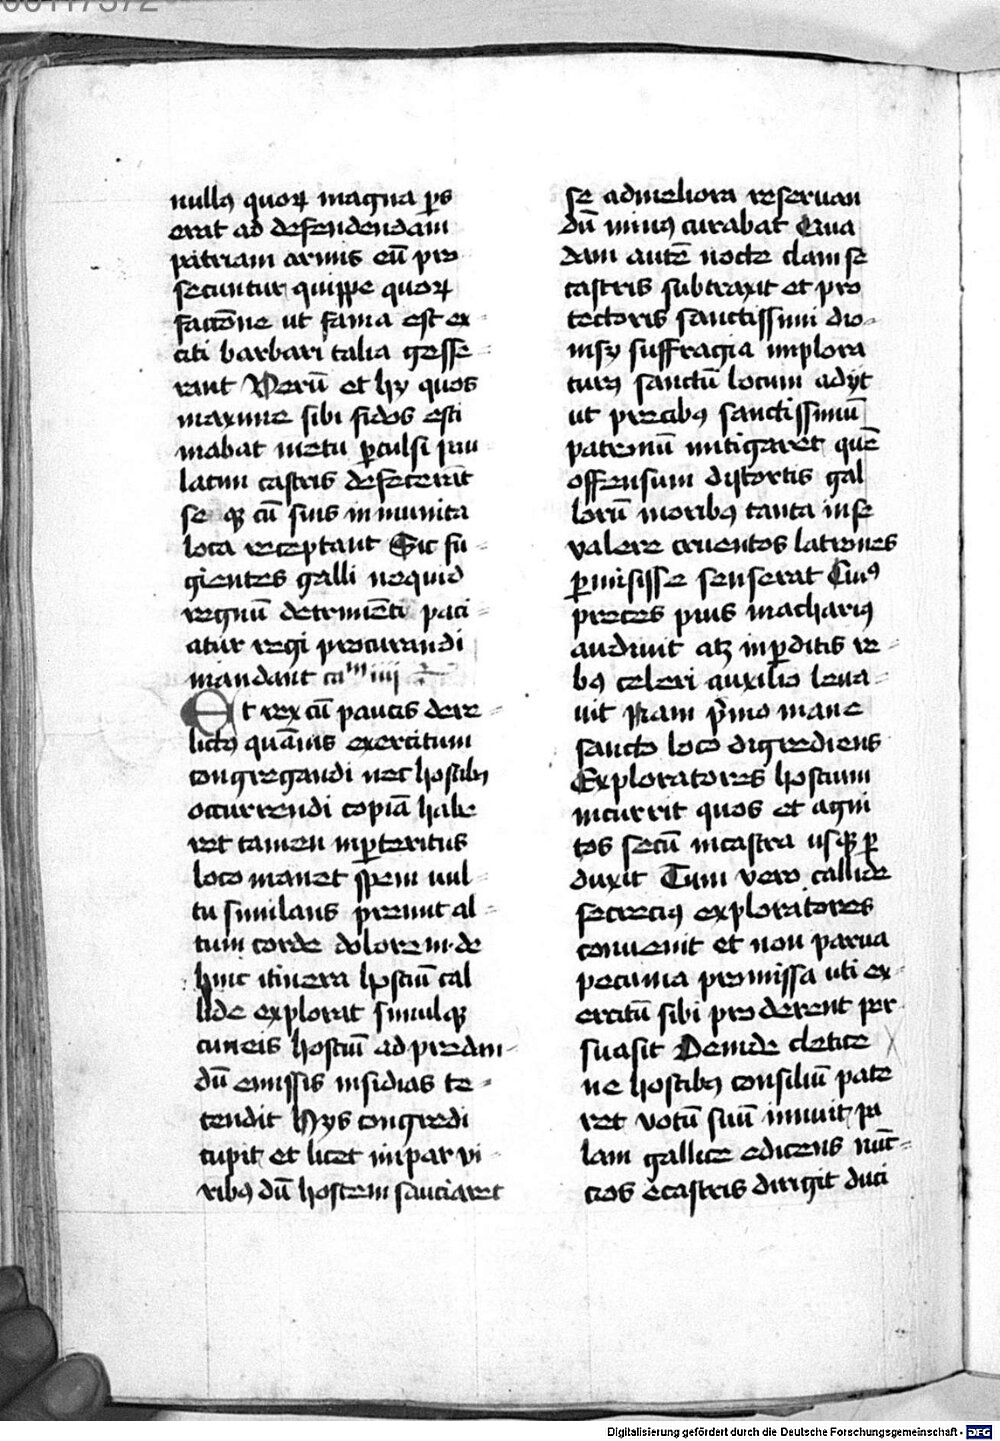 00117372
nullꝰ quoꝝ magna ꝑs
erat ad defendendam
patriam armis eū pro
secuntur quippe quoꝝ
factōne ut fama est ex
citi barbari talia gesse
rant Verū et hy quos
maxime sibi fidos esti
mabat metu ꝑculsi pau
latim castris defecerūt
se qꝫ cū suis in munita
loca receptant Sic fu
gientes galli nequid
regnū detrimēti paci
atur regi procurandi
mandant caᵐ iiij
Et rex cū paucis dere
lictꝰ quāuis exercitum
congregandi nec hostibꝰ
occurrendi copiā habe
ret tamen inꝑteritus
loco manet spem uul
tu similans premit al
tum corde dolorem de
hinc itinera hostiū cal
lide explorat simulqꝫ
cuneis hostiū ad predan
dū emissis insidias te
tendit Hys congredi
cupit et licet impar vi
ribꝰ dū hostem sauciaret
se admeliora reseruan
dū minꝰ curabat Qua
dam autē nocte clam se
castris subtraxit et pro
tectoris sanctissimi dio
nisy suffragia implora
turꝰ sanctū locum adyt
ut precibꝰ sanctissimū
patronū mitigaret quē
offensum distortis gal
lorū moribꝰ tanta in se
valere cruentos latrones
ꝑmisisse senserat Cuiꝰ
preces pius machariꝰ
audiuit atꝫ inꝑditis re
bꝰ celeri auxilio leua
uit Nam pⁱmo mane
sancto loco digrediens
Exploratores hostium
incurrit quos et agni
tos secū incastra usqꝫ ꝑ
duxit Tum vero callide
secreciꝰ exploratores
conuenit et non parua
pecunia promissa uti ex
ercitū sibi proderent per
suasit Deinde cletice
ne hostibꝰ consiliū pate
ret votū suū innuit pa
lam gallice edicens nūc
cios ecastris dirigit duci
Digitalisierung gefördert durch die Deutsche Forschungsgemeinschaft - DFG